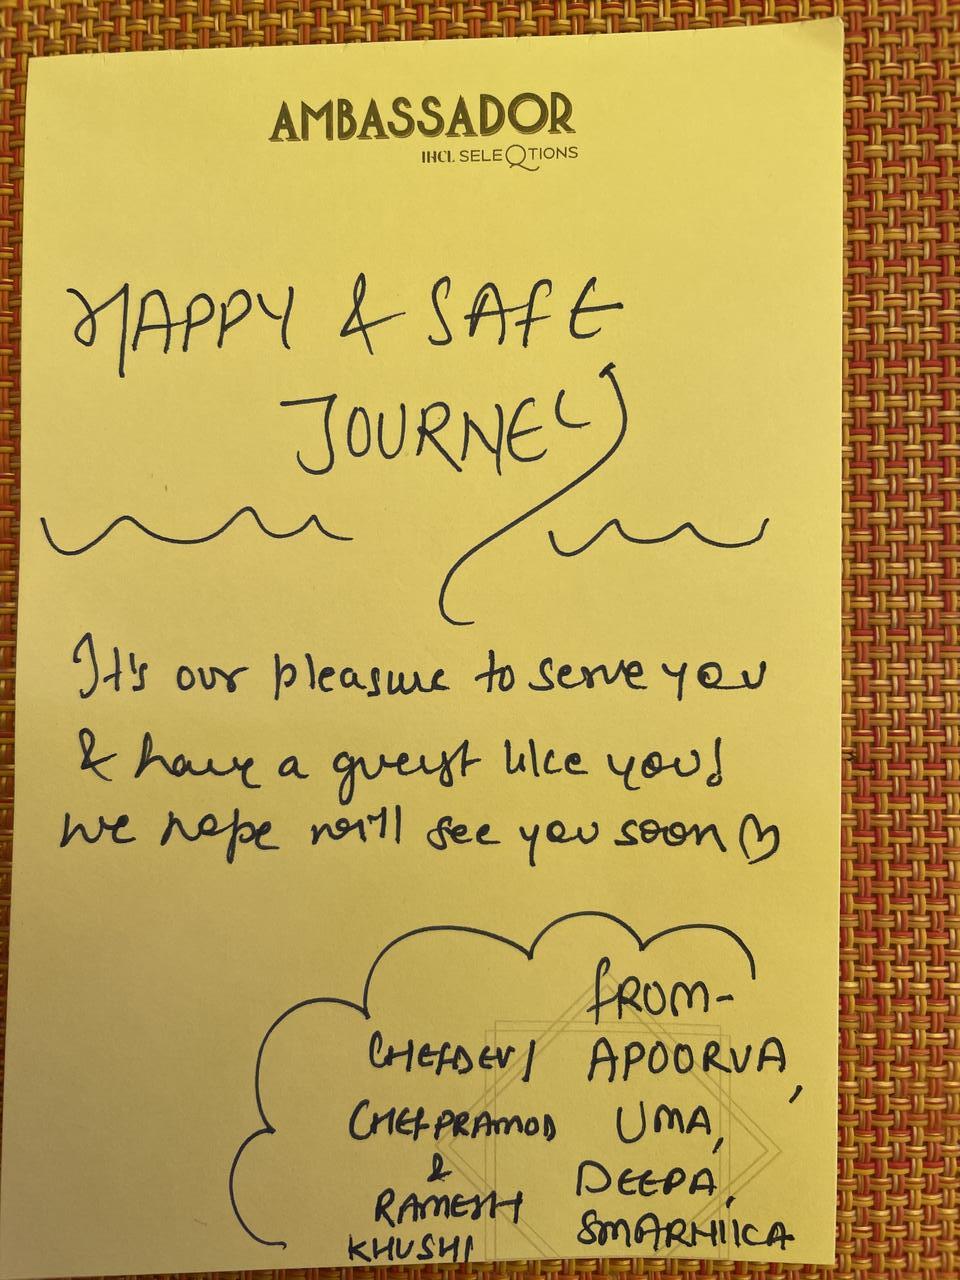 AMBASSADOR
IHCL SELEQTIONS
HAPPY & SAFE
JOURNEY
It's our pleasure to serve you
& have a guest like you!
we hope will see you soon ♡
FROM-
CHEF DEVI APOORVA,
CHEF PRAMOD UMA,
& DEEPA,
RAMESH
KHUSHI